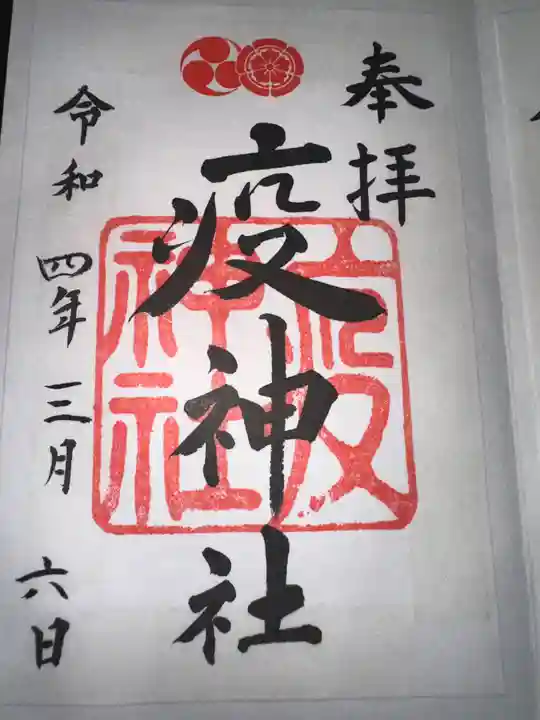 奉拝
疫神社
疫神社
令和四年三月六日